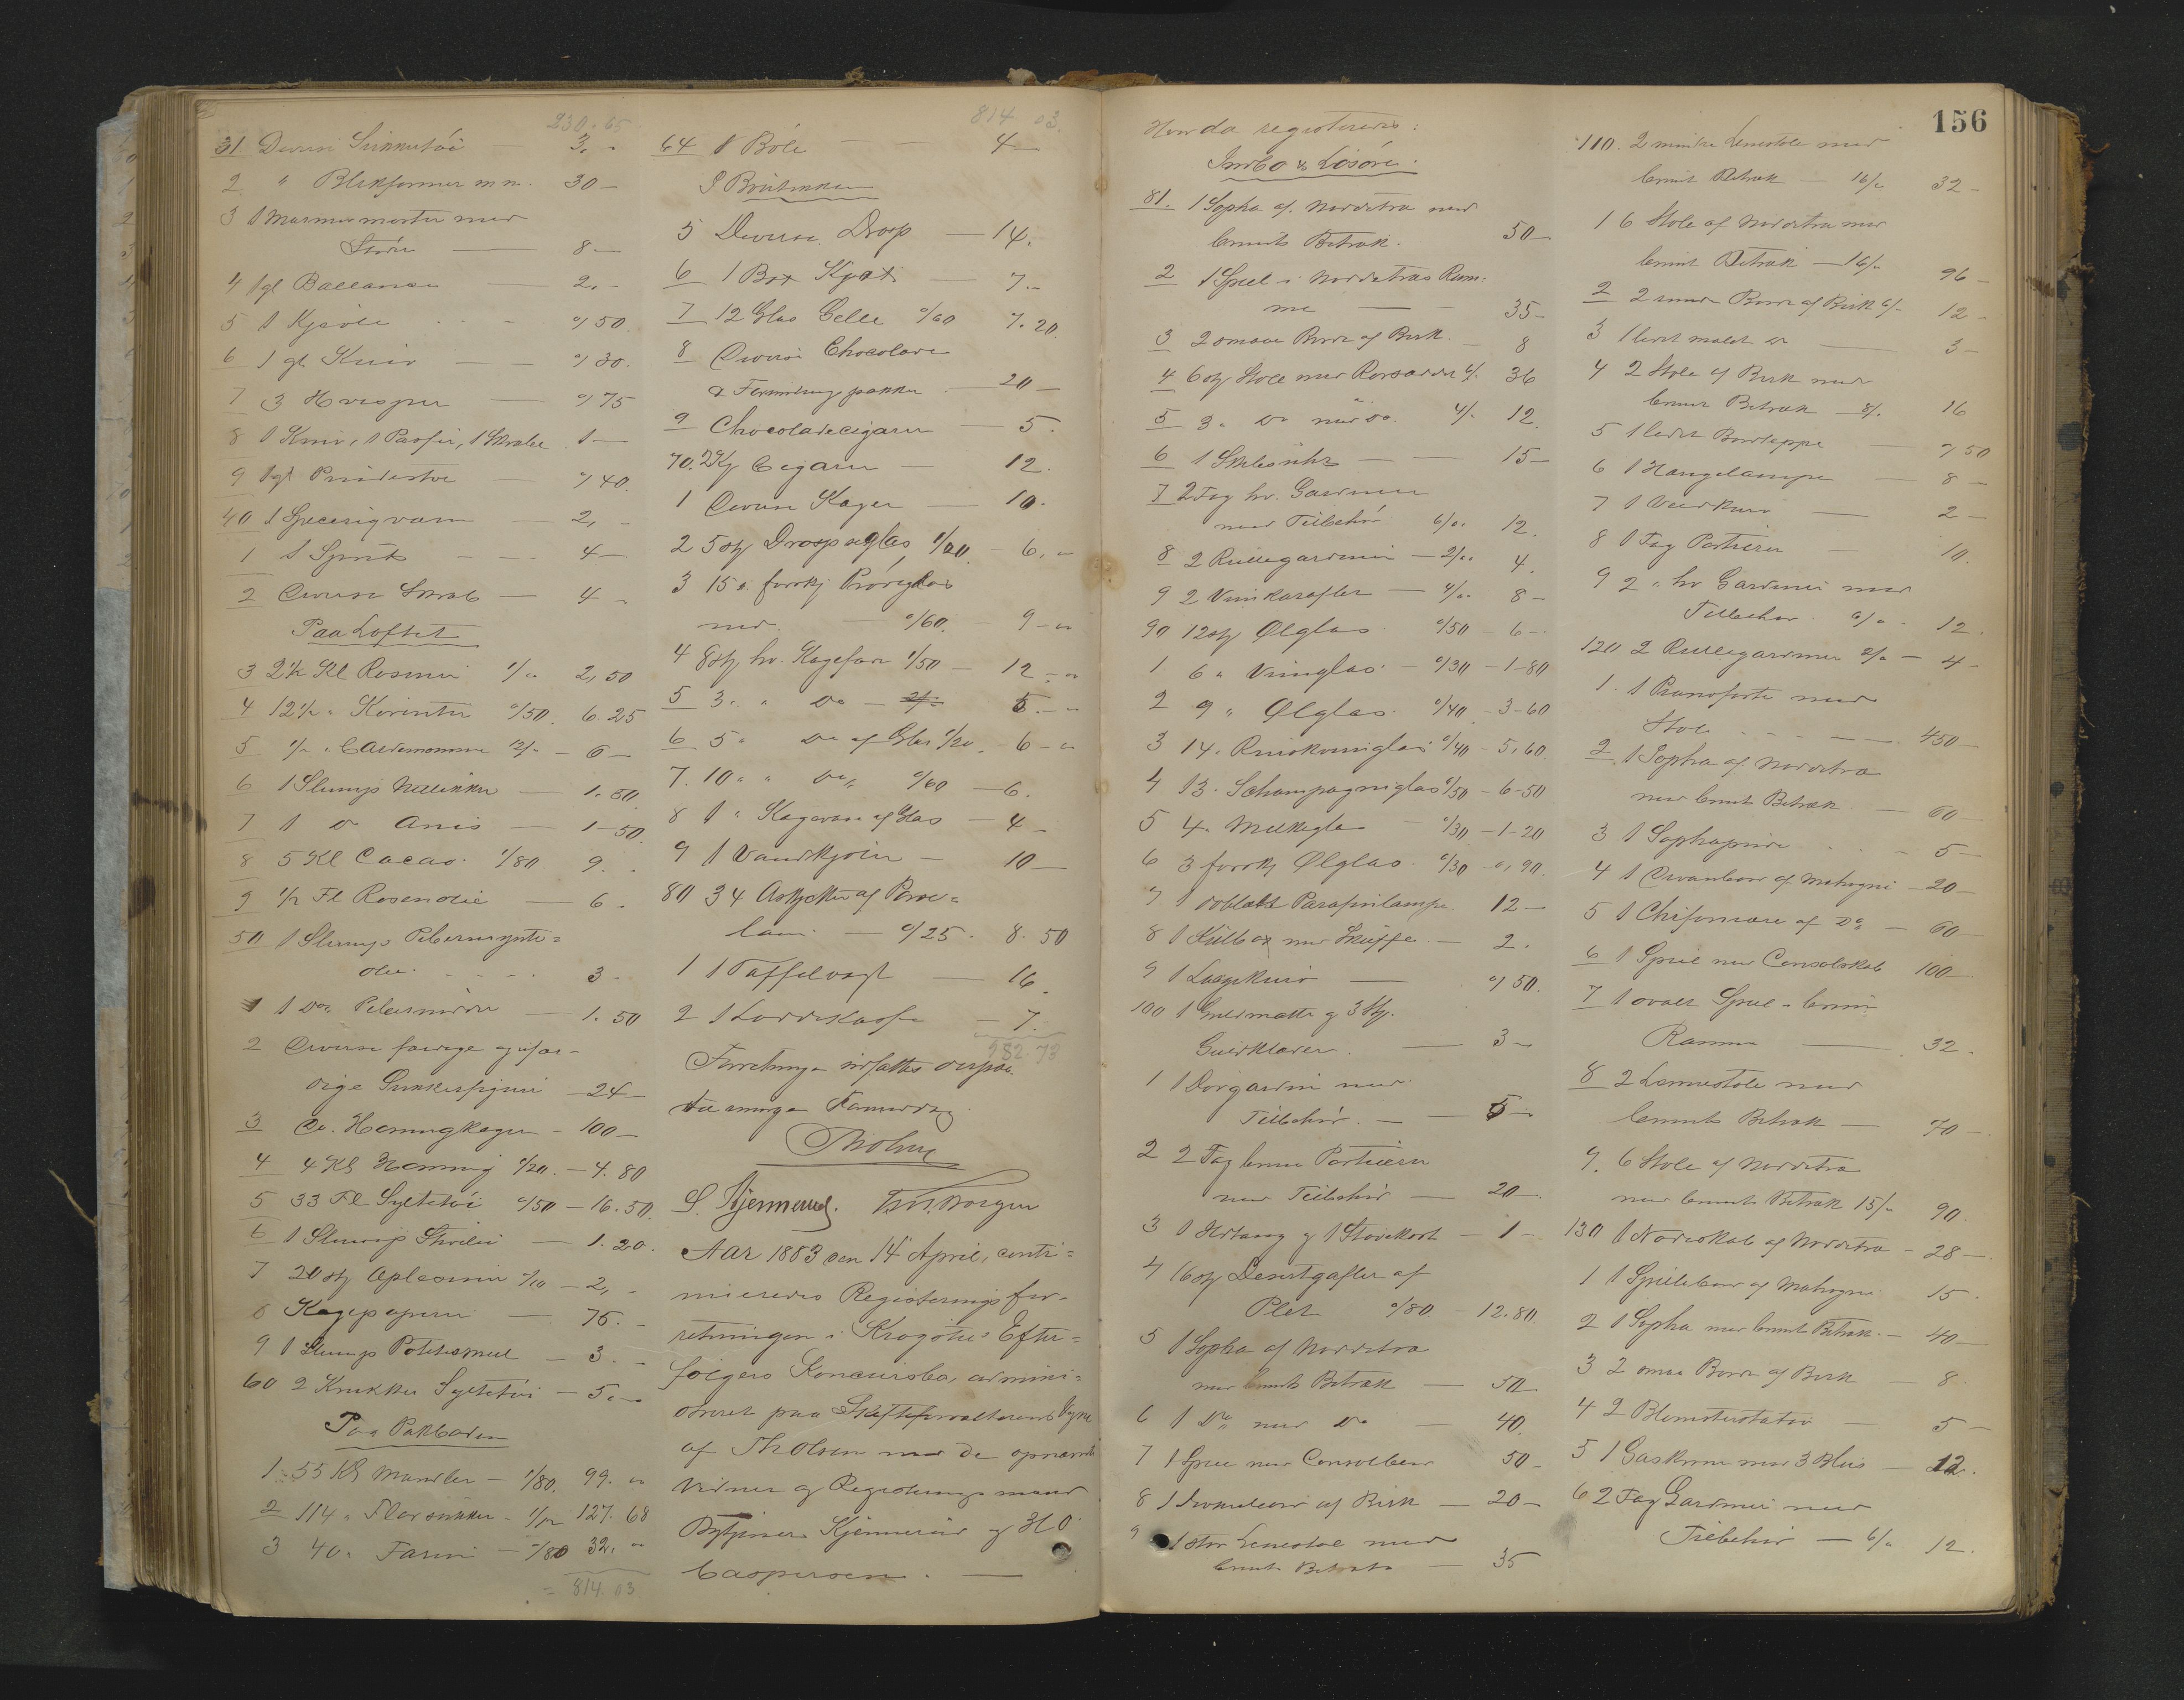 230.65
31 Diverse Sukkertøi — 3,-
2 " Blikformer m.m. 30-
3 1 Marmormorter med
Stöder — 8-
4 1 gl Ballance — 2,-
5 1 Kjedel - - 0/50
6 1 gl Kniv — 0/30.
7 3 Hvisper — 0/75
8 1 Kniv, 1 Passer, 1 Skrabe 1-
9 1 gl — 0/40.
40 1 — 2,-
1 1 — 4-
2 Diverse Skrab — 4-
Paa Loftet
3 2½ Kl Rosiner 1/" 2,50
4 12½ " Korinter 0/50. 6.25
5 ½ " Cardemomme 12/" - 6-
6 1 Slump Nelliker — 1.50
7 1 Do Anis — 1-50
8 5 Kl Cacao. 1/80 9.-
9 ½ Fl Rosenolie — 6-
50 1 Slump Pebermynte=
olie - - - 3-
1 1 Do — 1.50
2 Diverse færdige og ufær-
dige — 24-
3 Do. Honningkager - 100-
4 4 Kl Honning 1/20. - 4.80
5 33 Fl Syltetøi 0/50 - 16.50.
6 1 Slump — 1.20.
7 20 stk 0/10 - 2,-
8 Kagepapirer — 75.-
9 1 Slump Potetesmeel — 3.-
60 2 Krukker Syltetøi - 5,-
Paa Pakboden
1 55 Kl Mandler - 1/80. 99."
2 114 " Flor sukker 127.68
3 40 " Farin - "/80 32,"
= 814.03
814.03.
64 1 Bøle — 4-
I Boutikken
5 Diverse Drops — 14.
6 1 — 7.-
7 12 Glas Gelle 0/60 7.20
8 Diverse Chocolade
— 20-
9 Chocoladecigarer — 5.
70. 2 Kg Cigarer — 12.
1 Diverse Kager — 10.
2 5 stk Dropseglas 1/20 - 6,"
3 15 " forskj Prøveglas
med. — 0/60. - 9-"
4 8 stk hv. Kagefade 1/50 - 12-"
5 3 " " Do - 5.-"
6 5 " Do af Glas 1/20 - 6-"
7. 10 " " Do " 0/60 - 6.
8 1 " Kagevase af Glas - 4-
9 1 Vandkjøler - 10-
80 34 af Porce=
lain — 0/25. 8.50
1 1 Taffelvægt — 16.
2 1 — 7.
982.73
Forretningen udsattes derpaa
til imorgen Formiddag
ThOlsen
S. Kjennerud.
Aar 1883 den 14 April, conti=
nueredes Registeringsfor-
retningen i Krogsties Efter=
følgers Konkursbo, admini=
streret paa Skifteforvalterens Vegne
af Th Olsen med de opnævnte
Vidner og Registeringsmænd
Kjennerud og H O
Caspersen. —
156
Hvor da registreredes:
Indbo & Løsøre.
81. 1 Sopha af Nøddetræ med
brunt Betræk. 50-
2 1 Speil i Nøddetræs Ram-
me — 35-
3 2 smaa Borde af Birk. - 8
4 6 stk Stole med 6/. 36
5 3 " Do 4/. 12.
6 1 — 15-
7 2 Fag hv. Gardiner
med Tilbehør 6/". 12.
8 2 Rullegardiner - 2/" 4.
9 2 Vinkarafler - 4/" 8-
90 12 stk Ølglas 0/50 - 6-
1. 6 " Vinglas - 0/30 - 1-80
2 9 " Ølglas. 0/40 - 3-60
3 14 " 0/40 - 5,60
4 13 " Schampagniglas 0/50 - 6-50
5 4 " Melkeglas - 0/30 - 1-20
6 3 forskj Ølglas. 0/30 - 0,90.
7 1 Parafinlampe. 12-
8 1 Kulbox med Skuffe. - 2.
9 1 — 0/50.
100 1 Gulvmatte og 3 Stk.
Gulvklæder. — 3-
1 1 Dørgardin med
Tilbehør. — 5-
2 2 Fag brune Portierer
med Tilbehør — 20-
3 1 Ildtang og 1 Støvekost - 1-
4 16 stk Desertgafler af
Plet 0/80 - 12.80.
5 1 Sopha af Nøddetræ
med brunt Betræk — 50
6 1 Do med Do — 40.
7 1 Speil med Consolbord 50-
8 1 af Birk — 20-
9 1 stor Lenestol med
brunt Betræk — 35
110. 2 mindre Lenestole med
brunt Betræk - 16/" 32-
1 6 Stole af Nøddetræ med
brunt Betræk - 16/" 96-
2 2 runde Borde af Birk 6/- 12-
3 1 lidet malet Do — 3-
4 2 Stole af Birk med
brunt Betræk - 8/. 16
5 1 lidet Bordteppe - 0/50
6 1 Hængelampe - 8-
7 1 — 2-
8 1 Fag Portierer - 10.
9 2 " hv Gardiner med
Tilbehør. 6/" 12.
120 2 Rullegardiner 2/" - 4-
1. 1 Pianoforte med
Stol - - — 450-
2 1 Sopha af Nøddetræ
med brunt Betræk - 60-
3 1 Sophapude - - 5-
4 1 Divanbord af Mahogni - 20-
5 1 Chifonniere af Do - 60-
6 1 Speil med Consolskab 100-
7 1 ovalt Speil - brun
Ramme — 32.
8 2 Lænestole med
brunt Betræk — 70-
9. 6 Stole af Nøddetræ
med brunt Betræk 15/" 90.
130 1 Nodeskab af Nøddetræ - 28-
1 1 Spillebord af Mahogni 15-
2 1 Sopha med brunt Betræk. - 40-
3 2 smaa Borde af Birk - 8
4 2 Blomsterstativ - 5-
5 1 Gaskrone med 3 Blus - 12.
6 2 Fag Gardiner med
Tilbehør - 6/" 12.